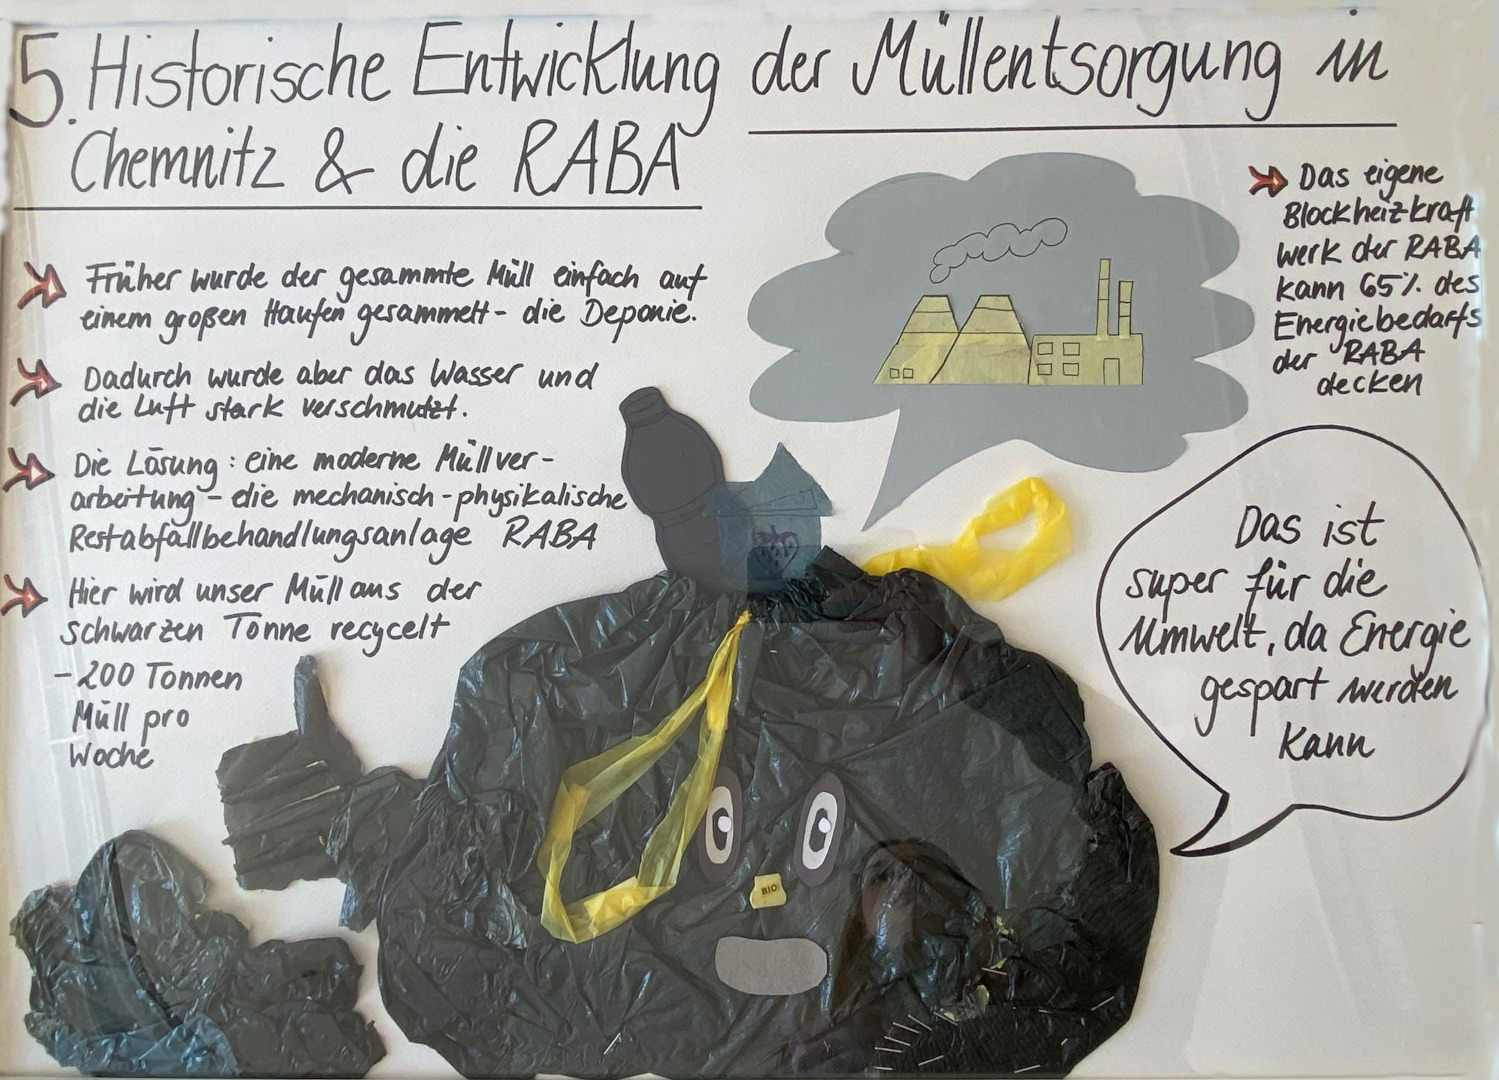 5. Historische Entwicklung der Müllentsorgung in
Chemnitz & die RABA
Früher wurde der gesammte Müll einfach auf
einem großen Haufen gesammelt - die Deponie.
Dadurch wurde aber das Wasser und
die Luft stark verschmutzt.
Die Lösung: eine moderne Müllver-
arbeitung - die mechanisch-physikalische
Restabfallbehandlungsanlage RABA
Hier wird unser Müll aus der
schwarzen Tonne recycelt
- 200 Tonnen
Müll pro
Woche
Das eigene
Blockheizkraft
werk der RABA
kann 65% des
Energiebedarfs
der RABA
decken
Das ist
super für die
Umwelt, da Energie
gespart werden
kann
BIO